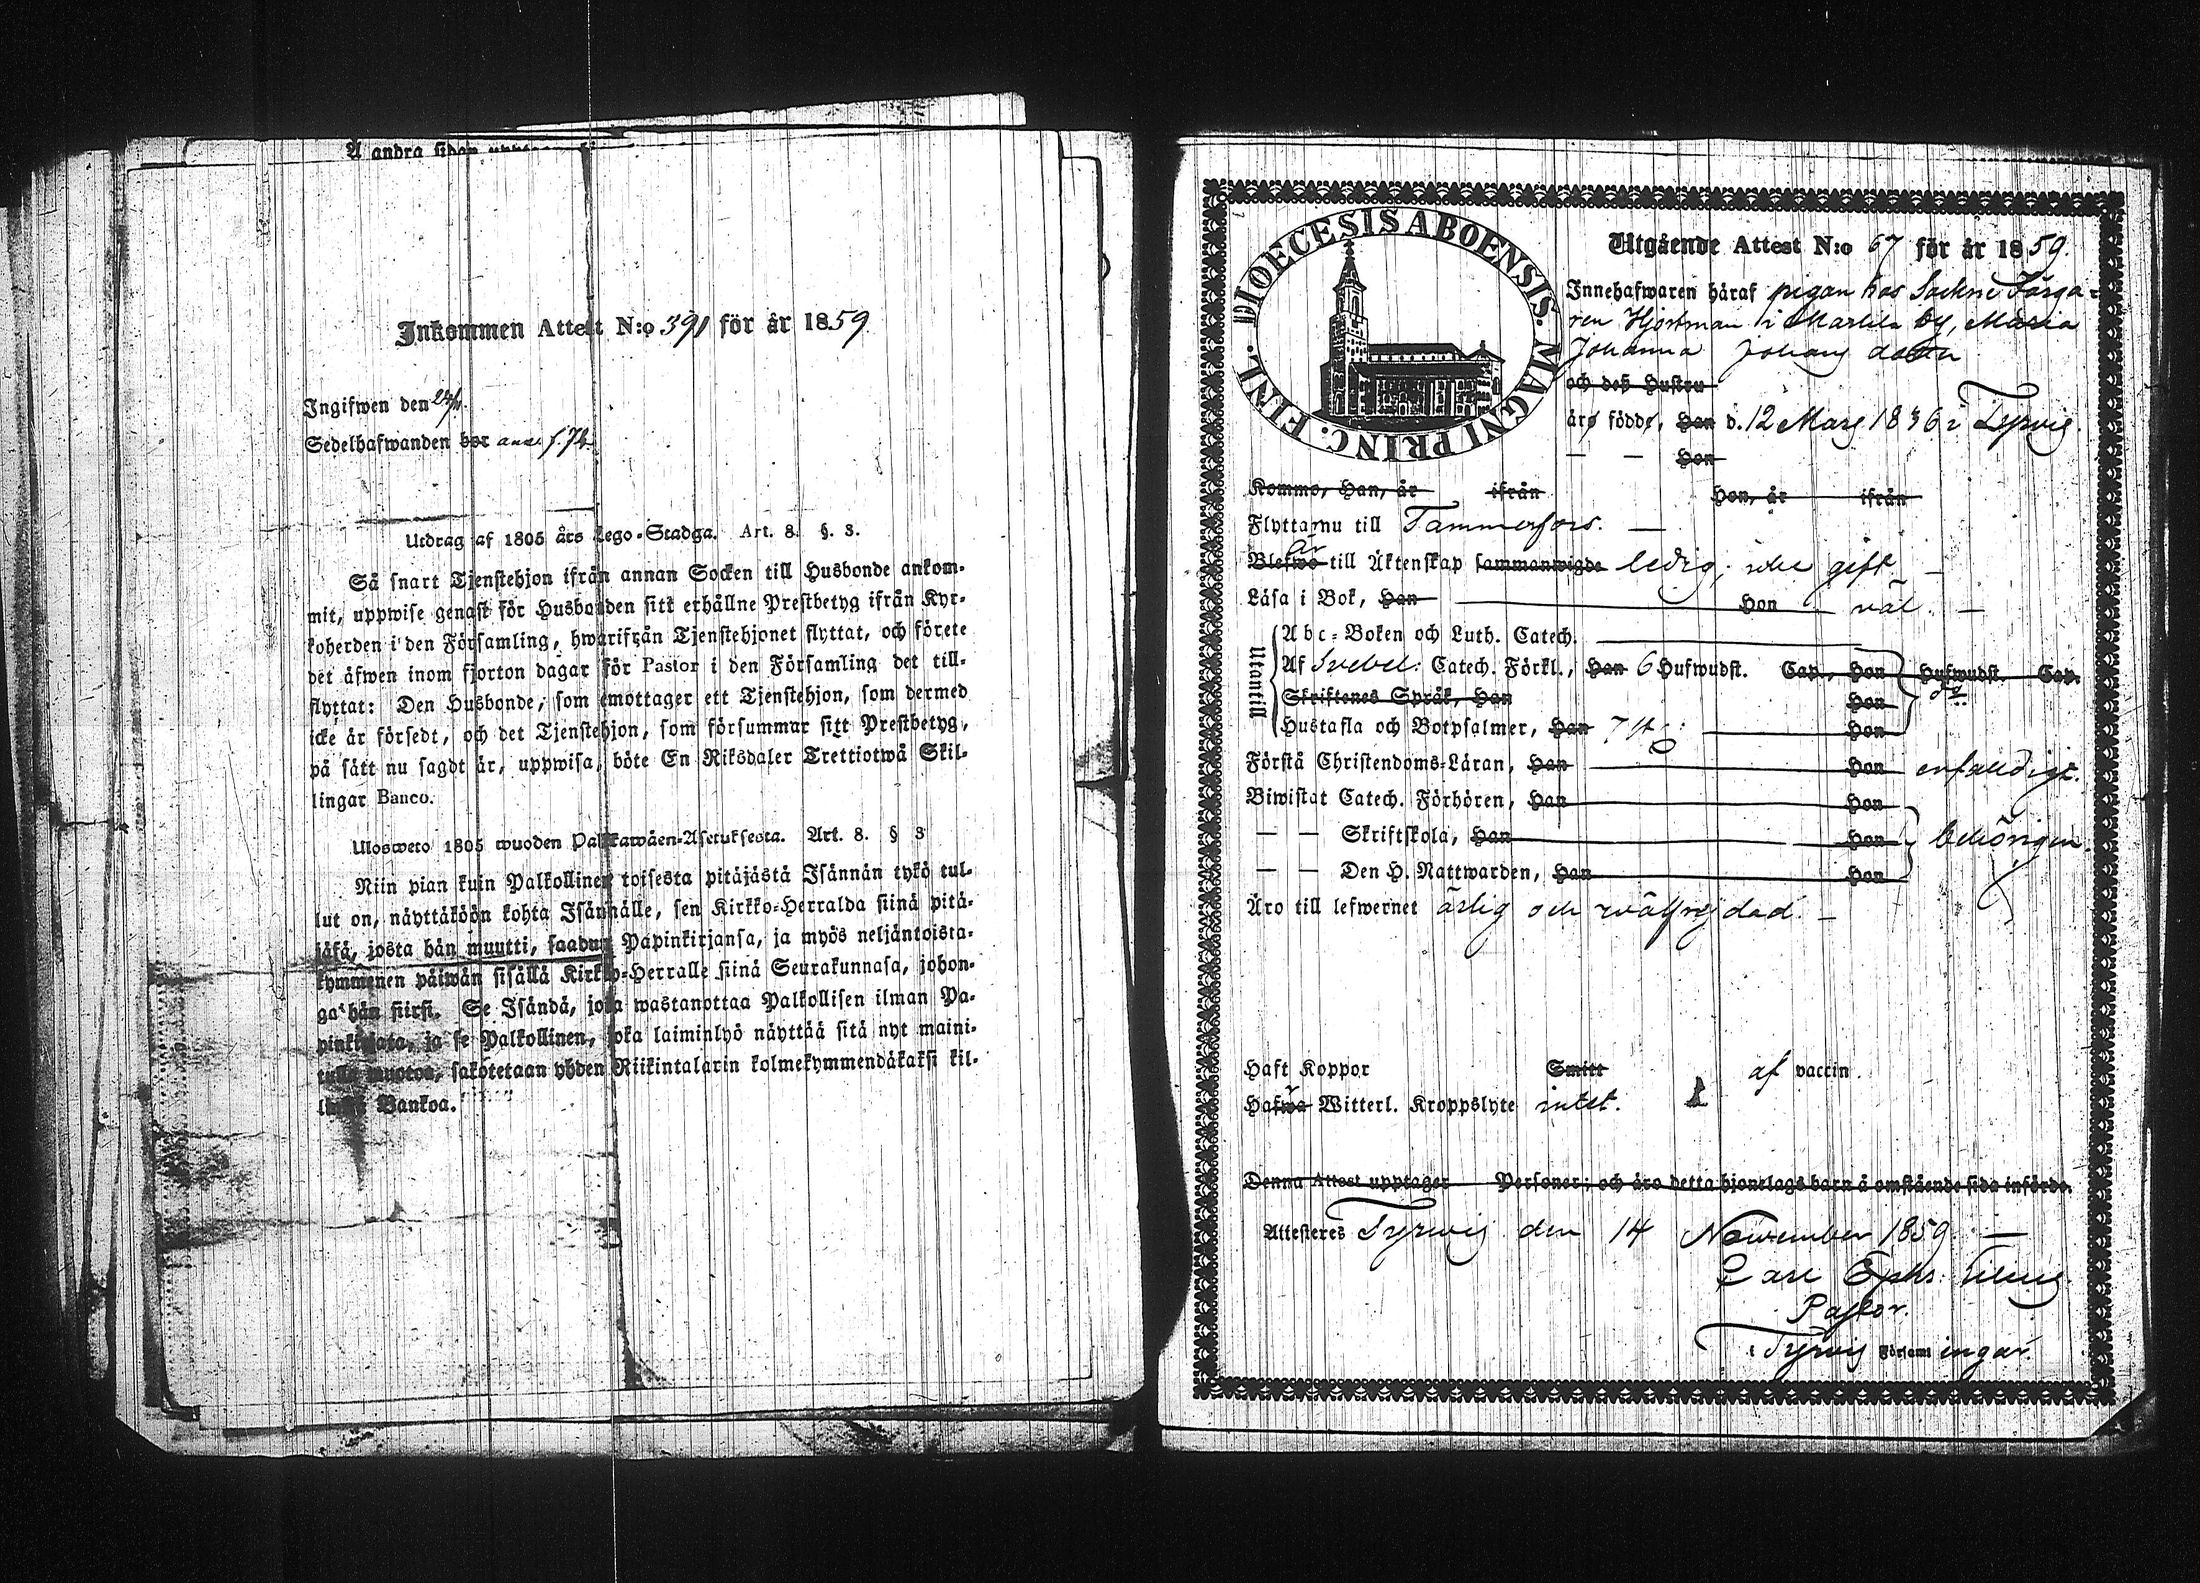 Å andra sidan
Inkommen Attest N:o 391 för år 1859
Ingifwen den 24/11.
Sedelhafwanden bor
Utdrag af 1805 års Lego-Stadga. Art. 8. §. 3.
Så snart Tjenstehjon ifrån annan Socken till Husbonde ankom-
mit, uppwise genast för Husbonden sitt erhållne Prestbetyg ifrån Kyr-
koherden i den Församling, hwarifrån Tjenstehjonet flyttat, och förete
det äfwen inom fjorton dagar för Pastor i den Församling det till-
flyttat: Den Husbonde, som emottager ett Tjenstehjon, som dermed
icke är försedt, och det Tjenstehjon, som försummar sitt Prestbetyg,
på sätt nu sagdt är, uppwisa, böte En Riksdaler Trettiotwå Skil-
lingar Banco.
Ulosweto 1805 wuoden Palkkawäen-Asetuksesta. Art. 8. § 3
Niin pian kuin Palkollinen toisesta pitäjästä Isännän tykö tul-
lut on, näyttäköön kohta Isännälle, sen Kirkko-Herralda siinä pitä-
jäsä, josta hän muutti, saadun Papinkirjansa, ja myös neljäntoista-
kymmenen päiwän sisällä Kirkko-Herralle siinä Seurakunnasa, johon-
ga hän siirsi. Se Isändä, joka wastanottaa Palkollisen ilman Pa-
pinkirjata, ja se Palkollinen, joka laiminlyö näyttää sitä nyt maini-
tulla muotoa, sakotetaan yhden Riikintalarin kolmekymmendäkaksi kil-
lingiä Bankoa.
DIOECESIS ABOENSIS. MAGNI PRINC. FINL.
Utgående Attest N:o 67 för år 1859.
Innehafwaren häraf pigan hos Sockne Färga-
ren Hjortman i Marttila by, Maria
Johanna Johans dotter
och deß Hustru
äro födde, Han d. 12 Mars 1836 i Tyrvis.
— — Hon
Kommo, Han, år ifrån Hon, år ifrån
Flytta nu till Tammerfors. —
är
Blefwo till Äktenskap sammanwigde ledig, icke gift —
Läsa i Bok, Han Hon väl —
Utantill
Abc-Boken och Luth. Catech.
Af Svebel: Catech. Förkl., Han 6 Hufwudst. Cap., Hon Hufwudst. Cap.
Skriftenes Språk, Han Hon
Hustafla och Botpsalmer, Han 7 st: Hon
Förstå Christendoms-Läran, Han Hon enfalldigt.
Biwistat Catech. Förhören, Han Hon
— — Skriftskola, Han Hon behörigen
— — Den H. Nattwarden, Han Hon
Äro till lefwernet ärlig och välfrejdad. —
Haft Koppor Smitt af vaccin
Hafwa Witterl. Kroppslyte intet.
Denna Attest upptager Personer; och äro detta hjonelags barn å omstående sida införde.
Attesteres Tyrvis den 14 November 1859 —
Carl Ephr:
Pastor
i Tyrvis Församl ingar.